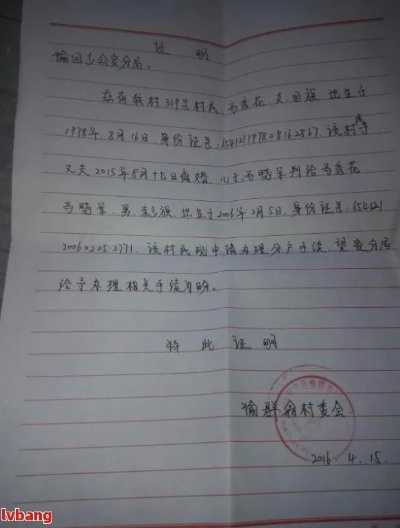 证 明
公安分局:
兹有我村319号村民,马秀花 女 回族 出生于
1978年8月16日 身份证号:654121197808162867. 该村民于
丈夫2015年8月15日离婚,儿子马晓军判给马秀花.
马晓军.男.出生于2006年2月5日.身份证号:654121
200602052771. 该村民现申请办理分户手续,望贵分局
给予办理相关手续为盼。
特此证明
村委会
2016.4.15.
lvbang